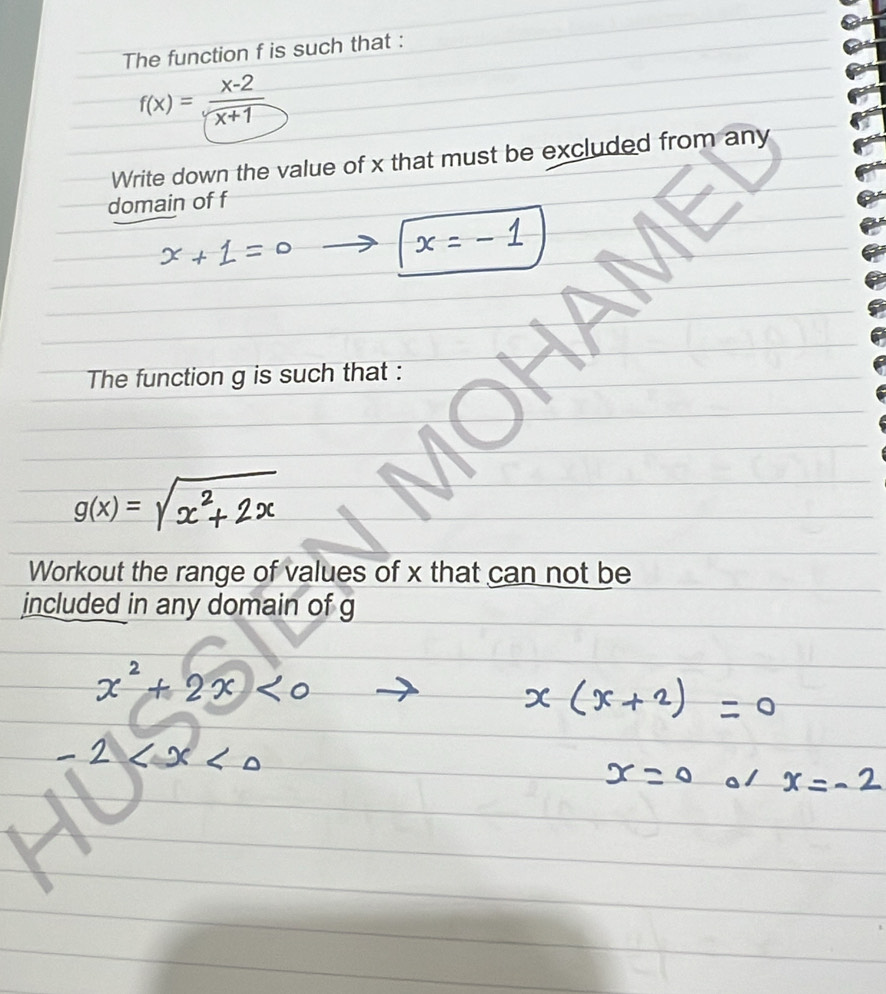 The function f is such that :
f(x) = x-2
x+1
Write down the value of x that must be excluded from any
domain of f
x + 1 = 0 → x = - 1
The function g is such that :
g(x) = √x²+ 2x
Workout the range of values of x that can not be
included in any domain of g
x² + 2x < 0 → x (x + 2) = 0
- 2 < x < 0 x = 0 or x = - 2
HUSSIEN MOHAMED